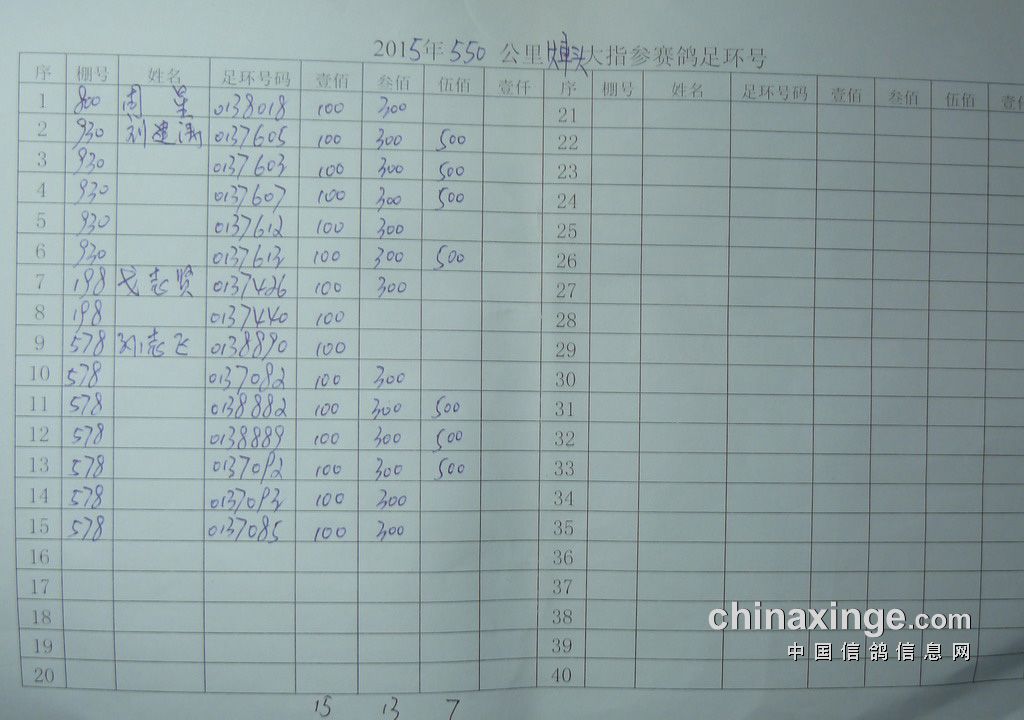 2015年550公里 大指参赛鸽足环号
序 棚号 姓名 足环号码 壹佰 叁佰 伍佰 壹仟 序 棚号 姓名 足环号码 壹佰 叁佰 伍佰 壹仟
1 800 周 星 0138018 100 300 21
2 930 刘建 0137605 100 300 500 22
3 930 0137603 100 300 500 23
4 930 0137607 100 300 500 24
5 930 0137612 100 300 25
6 930 0137613 100 300 500 26
7 198 戈志贤 0137426 100 300 27
8 198 0137440 100 28
9 578 孙志飞 0138890 100 29
10 578 0137082 100 300 30
11 578 0138882 100 300 500 31
12 578 0138889 100 300 500 32
13 578 0137092 100 300 500 33
14 578 0137093 100 300 34
15 578 0137085 100 300 35
16 36
17 37
18 38
19 39
20 40
15 13 7
chinaxinge.com
中国信鸽信息网